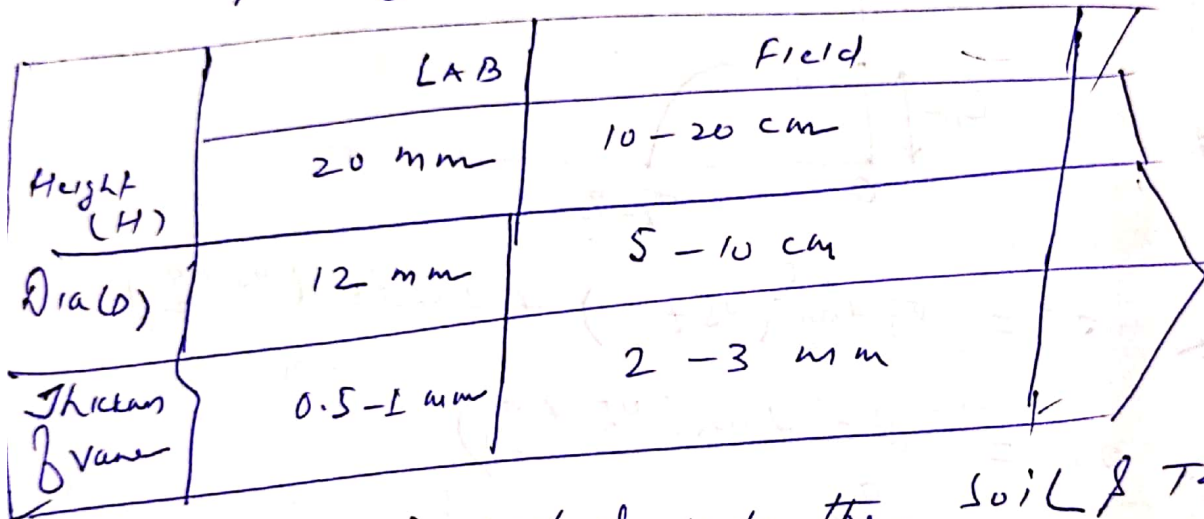 LAB Field
Height (H) 20 mm 10 – 20 cm
Dia (D) 12 mm 5 – 10 cm
of vane 0.5–1 mm 2 – 3 mm
the soil &